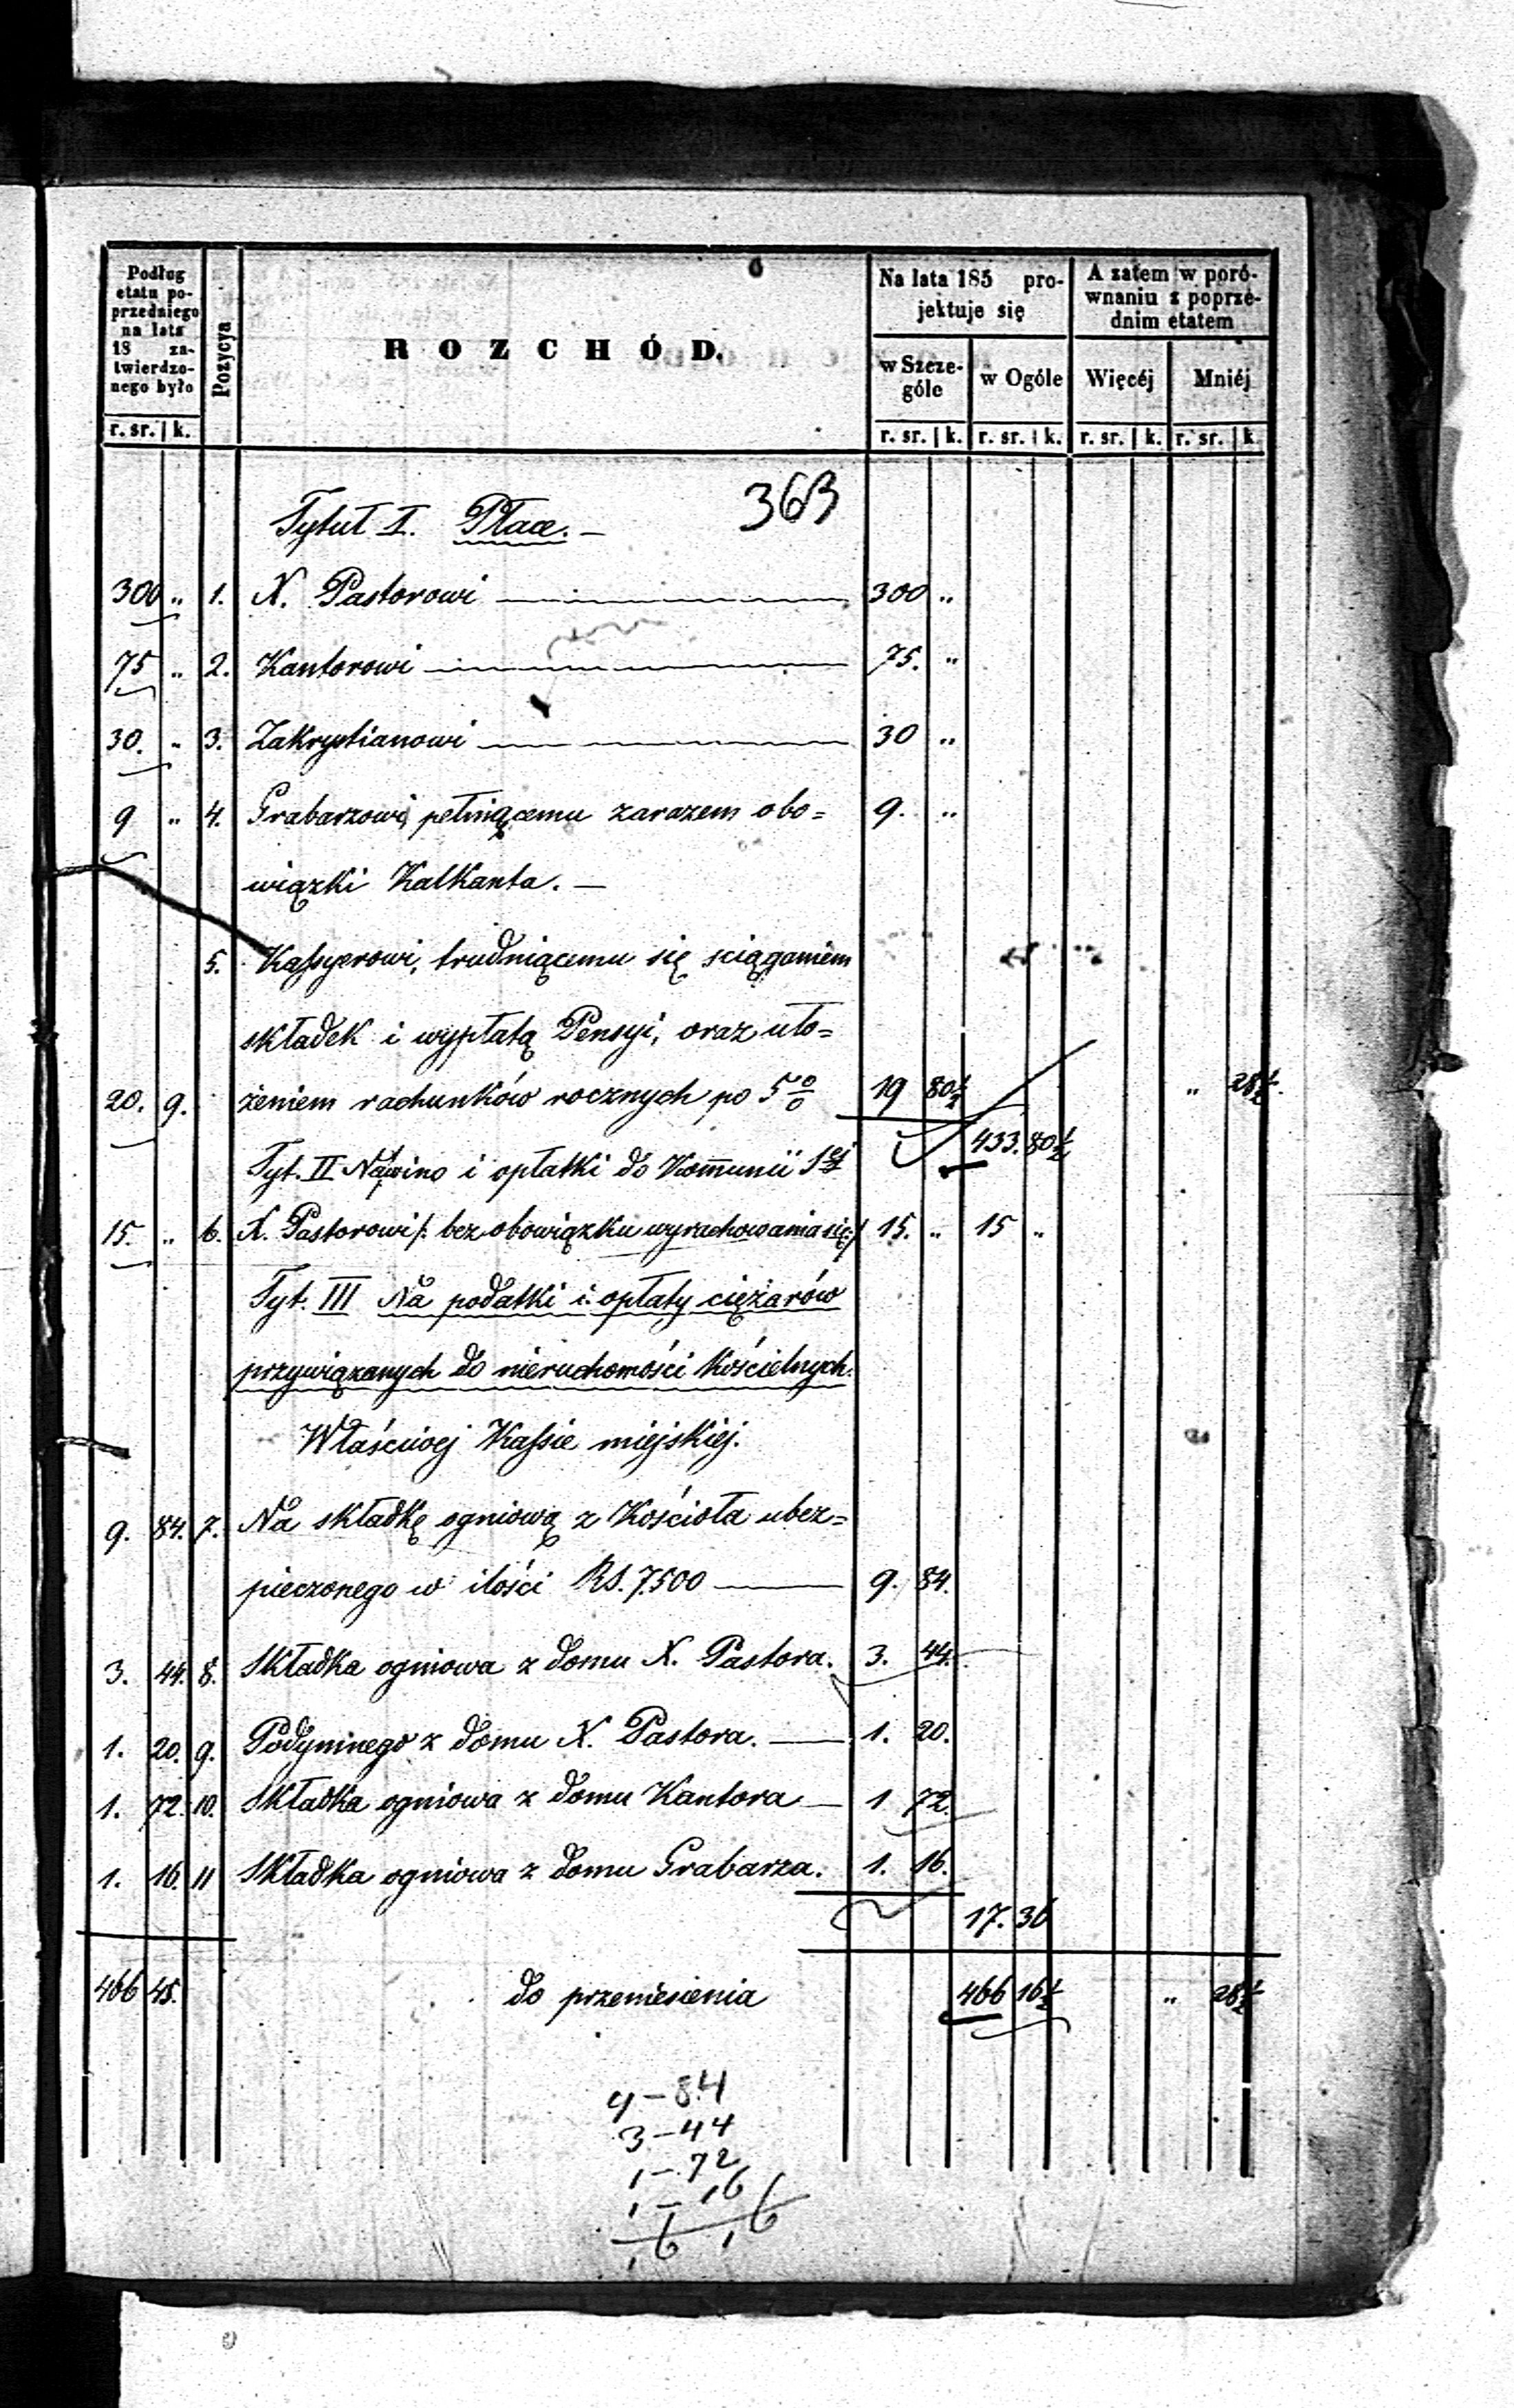 Podług
etatu po-
przedniego
na lata
18 za-
twierdzo-
nego było
Pozycya
ROZCHÓD.
Na lata 185 pro-
jektuje się
A zatem w poró-
wnaniu z poprze-
dnim etatem
w Szcze-
góle
w Ogóle
Więcéj
Mniéj
r. sr. k. r. sr. k. r. sr. k. r. sr. k. r. sr. k.
363
Tytuł I. Płace. —
300 „ 1. X. Pastorowi 300 „
75 „ 2. Kantorowi 75. „
30. „ 3. Zakrystianowi 30 „
9 „ 4. Grabarzowi, pełniącemu zarazem obo= 9. „
wiązki Kalkanta. —
5. Kassyerowi, trudniącemu się sciąganiem
składek i wypłatą Pensyi, oraz uło=
20. 9. żeniem rachunków rocznych po 5% 19 80½ „ 28½.
433. 80½
Tyt. II Na wino i opłatki do Kommunii Stej
15. „ 6. X. Pastorowi /: bez obowiązku wyrachowania się :/ 15. „ 15 „
Tyt. III Na podatki i opłaty ciężarów
przywiązanych do nieruchomości kościelnych.
Właściwej Kassie miejskiej.
9. 84. 7. Na składkę ogniową z Kościoła ubez=
pieczonego w ilości RS. 7500 9. 84.
3. 44. 8. Składka ogniowa z domu X. Pastora. 3. 44.
1. 20. 9. Podymnego z domu X. Pastora. 1. 20.
1. 72. 10. Składka ogniowa z domu Kantora 1 72.
1. 16. 11 Składka ogniowa z domu Grabarza. 1. 16.
17. 36
466 45. do przeniesienia 466 16½ „ 28½
9-84
3-44
1-72
1-16
16 16